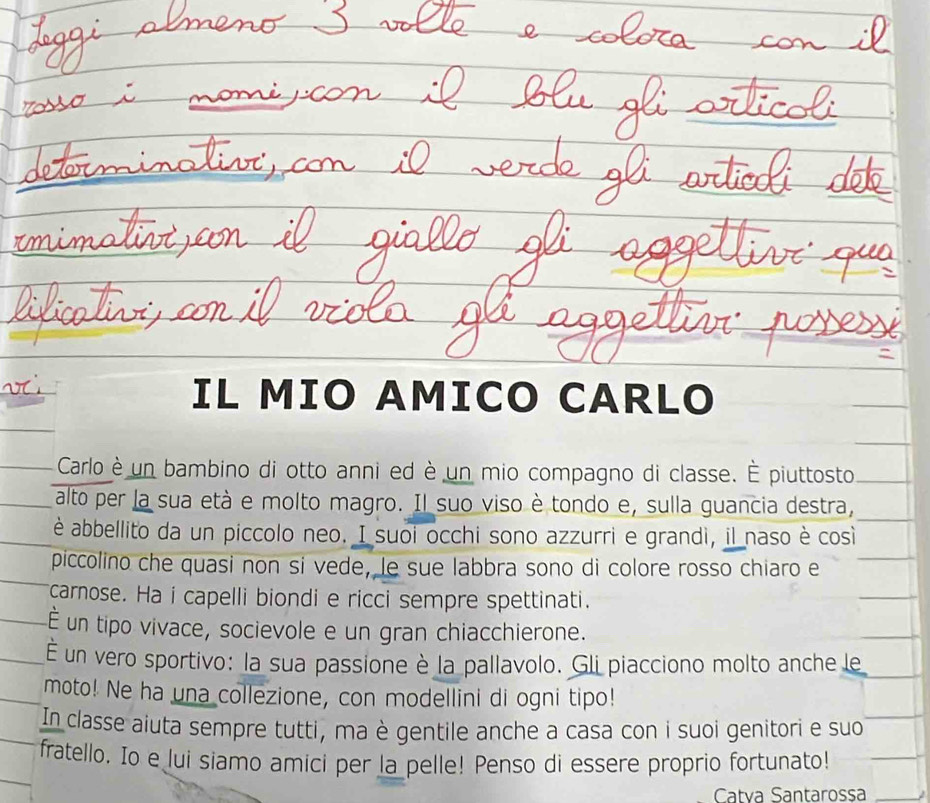 Leggi almeno 3 volte e colora con il
rosso i nomi, con il blu gli articoli
determinativi, con il verde gli articoli dete
rminativi, con il giallo gli aggettivi qua
lificativi, con il viola gli aggettivi possessi
vi.
IL MIO AMICO CARLO
Carlo è un bambino di otto anni ed è un mio compagno di classe. È piuttosto
alto per la sua età e molto magro. Il suo viso è tondo e, sulla guancia destra,
è abbellito da un piccolo neo. I suoi occhi sono azzurri e grandi, il naso è così
piccolino che quasi non si vede, le sue labbra sono di colore rosso chiaro e
carnose. Ha i capelli biondi e ricci sempre spettinati.
È un tipo vivace, socievole e un gran chiacchierone.
È un vero sportivo: la sua passione è la pallavolo. Gli piacciono molto anche le
moto! Ne ha una collezione, con modellini di ogni tipo!
In classe aiuta sempre tutti, ma è gentile anche a casa con i suoi genitori e suo
fratello. Io e lui siamo amici per la pelle! Penso di essere proprio fortunato!
Catya Santarossa